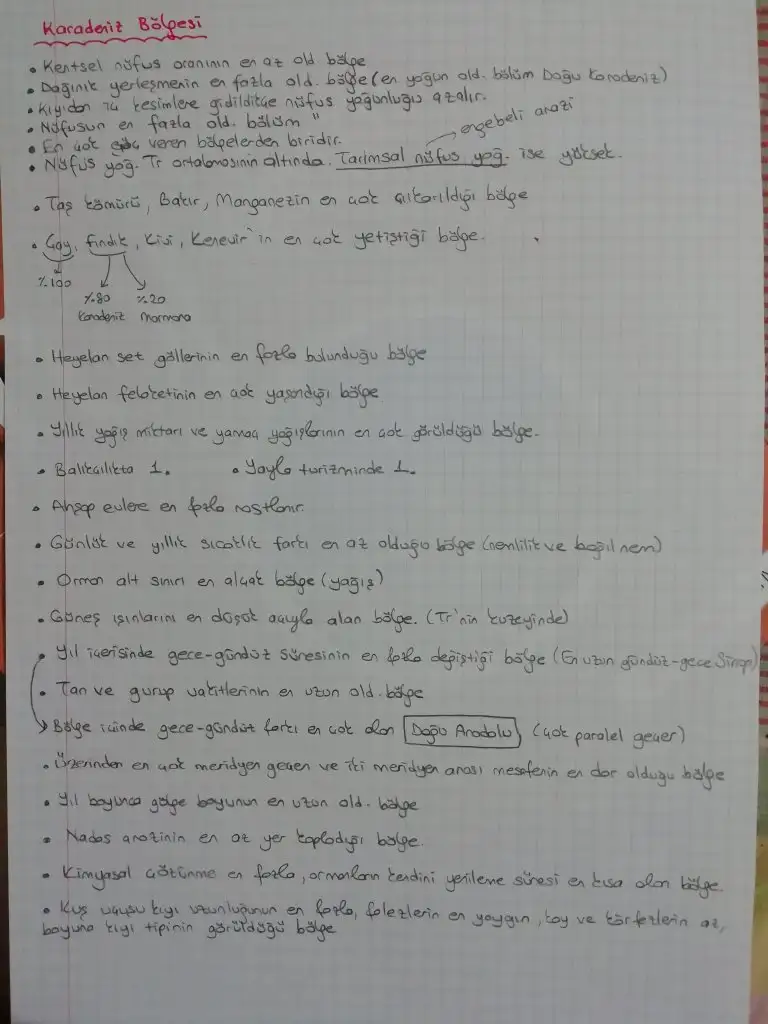 Karadeniz Bölgesi
• Kentsel nüfus oranının en az old bölge
• Dağınık yerleşmenin en fazla old. bölge (en yoğun old. bölüm Doğu Karadeniz)
• Kıyıdan iç kesimlere gidildikçe nüfus yoğunluğu azalır.
• Nüfusun en fazla old. bölüm "
• En çok göç veren bölgelerden biridir.
engebeli arazi
• Nüfus yoğ. Tr ortalamasının altında. Tarımsal nüfus yoğ. ise yüksek.
• Taş kömürü, Bakır, Manganezin en çok çıkarıldığı bölge
• Çay, fındık, Kivi, Kenevir'in en çok yetiştiği bölge.
%100
%80 %20
Karadeniz Marmara
• Heyelan set göllerinin en fazla bulunduğu bölge
• Heyelan felaketinin en çok yaşandığı bölge
• Yıllık yağış miktarı ve yamaç yağışlarının en çok görüldüğü bölge.
• Balıkçılıkta 1. • Yayla turizminde 1.
• Ahşap evlere en fazla rastlanır.
• Günlük ve yıllık sıcaklık farkı en az olduğu bölge (nemlilik ve bağıl nem)
• Orman alt sınırı en alçak bölge (yağış)
• Güneş ışınlarını en düşük açıyla alan bölge. (Tr'nin kuzeyinde)
• Yıl içerisinde gece-gündüz süresinin en fazla değiştiği bölge (En uzun gündüz-gece Sinop)
• Tan ve gurup vakitlerinin en uzun old. bölge
Bölge içinde gece-gündüz farkı en çok olan Doğu Anadolu (çok paralel geçer)
• Üzerinden en çok meridyen geçen ve iki meridyen arası mesafenin en dar olduğu bölge
• Yıl boyunca gölge boyunun en uzun old. bölge
• Nadas arazinin en az yer kapladığı bölge.
• Kimyasal çözünme en fazla, ormanların kendini yenileme süresi en kısa olan bölge.
• Kuş uçuşu kıyı uzunluğunun en fazla, falezlerin en yaygın, koy ve körfezlerin az,
boyuna kıyı tipinin görüldüğü bölge